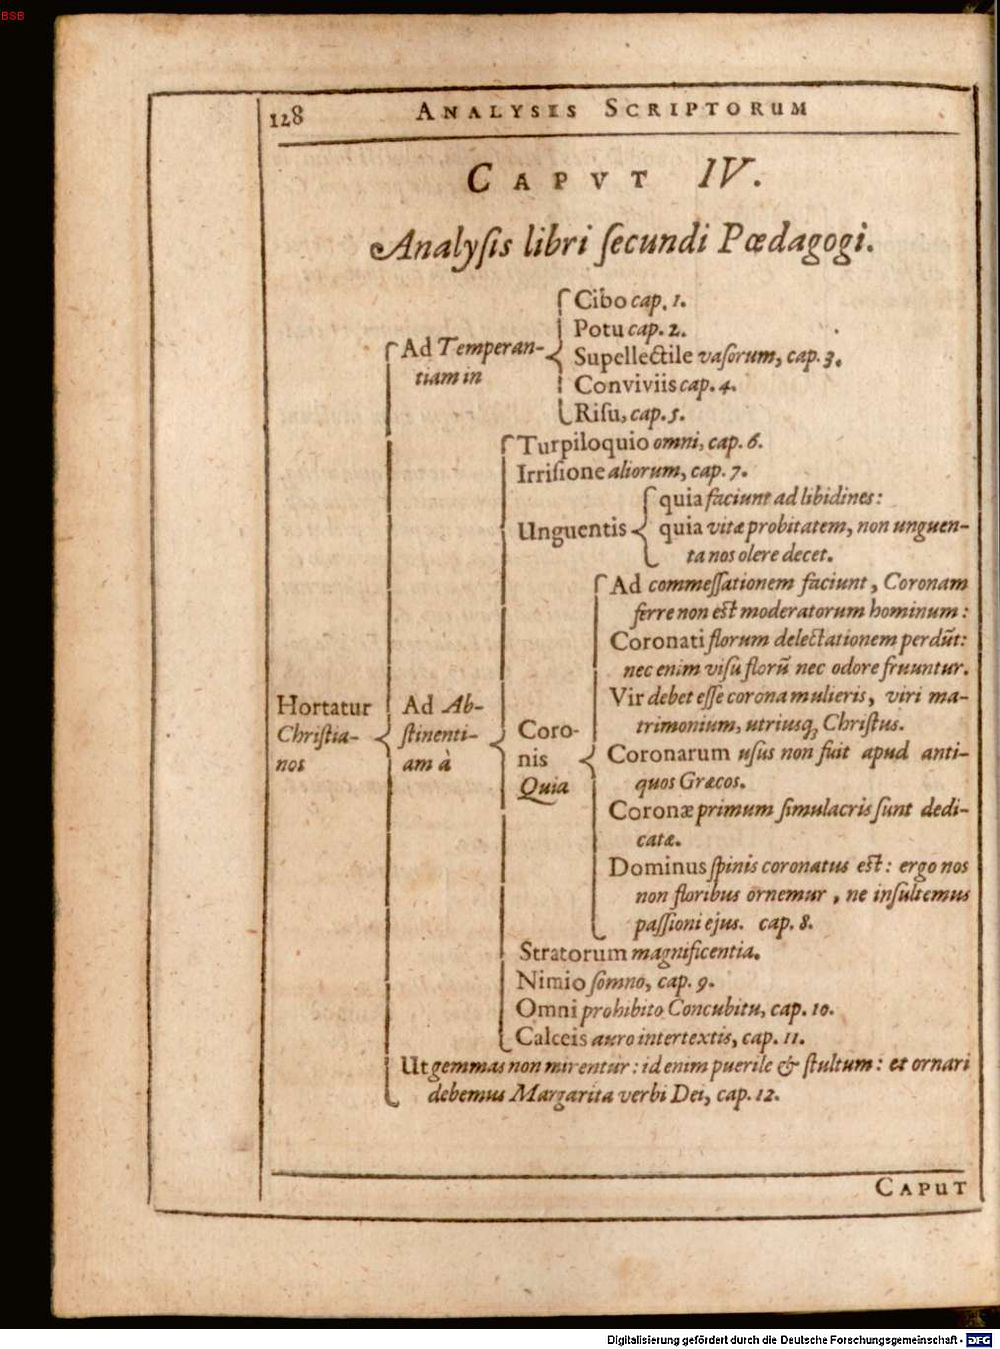 BSB
128 ANALYSIS SCRIPTORUM
CAPVT IV.
Analyſis libri ſecundi Pœdagogi.
Cibo cap. 1.
Potu cap. 2.
Ad Temperan-
Supellectile vaſorum, cap. 3.
tiam in
Conviviis cap. 4.
Riſu, cap. 5.
Turpiloquio omni, cap. 6.
Irriſione aliorum, cap. 7.
quia faciunt ad libidines:
Unguentis
quia vitæ probitatem, non unguen-
ta nos olere decet.
Ad commeſſationem faciunt, Coronam
ferre non eſt moderatorum hominum:
Coronati florum delectationem perdũt:
nec enim viſu florũ nec odore fruuntur.
Hortatur
Chriſtia-
nos
Ad Ab-
ſtinenti-
am à
Coro-
nis
Quia
Vir debet eſſe corona mulieris, viri ma-
trimonium, utriusq; Chriſtus.
Coronarum uſus non fuit apud anti-
quos Græcos.
Coronæ primum ſimulacris ſunt dedi-
catæ.
Dominus ſpinis coronatus eſt: ergo nos
non floribus ornemur, ne inſultemus
paſſioni ejus. cap. 8.
Stratorum magnificentia.
Nimio ſomno, cap. 9.
Omni prohibito Concubitu, cap. 10.
Calceis auro intertextis, cap. 11.
Ut gemmas non mirentur: id enim puerile & ſtultum: et ornari
debemus Margarita verbi Dei, cap. 12.
CAPUT
Digitalisierung gefördert durch die Deutsche Forschungsgemeinschaft - DFG